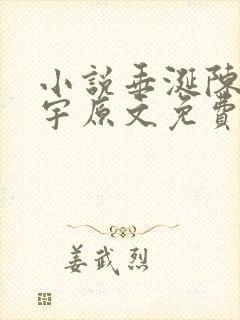 小説垂涎陳
宇原文免費
姜武烈